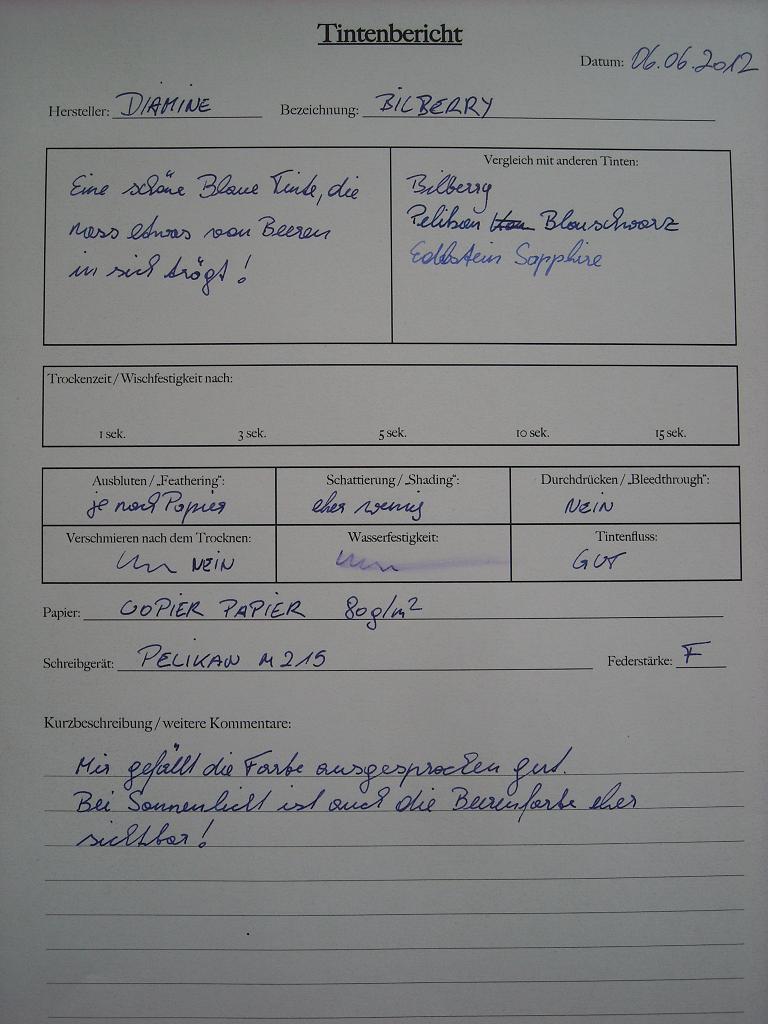 Tintenbericht
Datum: 06.06.2012
Hersteller: DIAMINE Bezeichnung: BILBERRY
Eine schöne Blaue Tinte, die
etwas von Beeren
in sich trägt!
Vergleich mit anderen Tinten:
Bilberry
Pelikan Blauschwarz
Edelstein Sapphire
Trockenzeit / Wischfestigkeit nach:
1 sek. 3 sek. 5 sek. 10 sek. 15 sek.
Ausbluten / „Feathering“: Schattierung / „Shading“: Durchdrücken / „Bleedthrough“:
je nach Papier eher wenig NEIN
Verschmieren nach dem Trocknen: Wasserfestigkeit: Tintenfluss:
NEIN GUT
Papier: COPIER PAPIER 80g/m²
Schreibgerät: PELIKAN M215 Federstärke: F
Kurzbeschreibung / weitere Kommentare:
Mir gefällt die Farbe ausgesprochen gut.
Bei Sonnenlicht ist auch die Beerenfarbe eher
sichtbar!